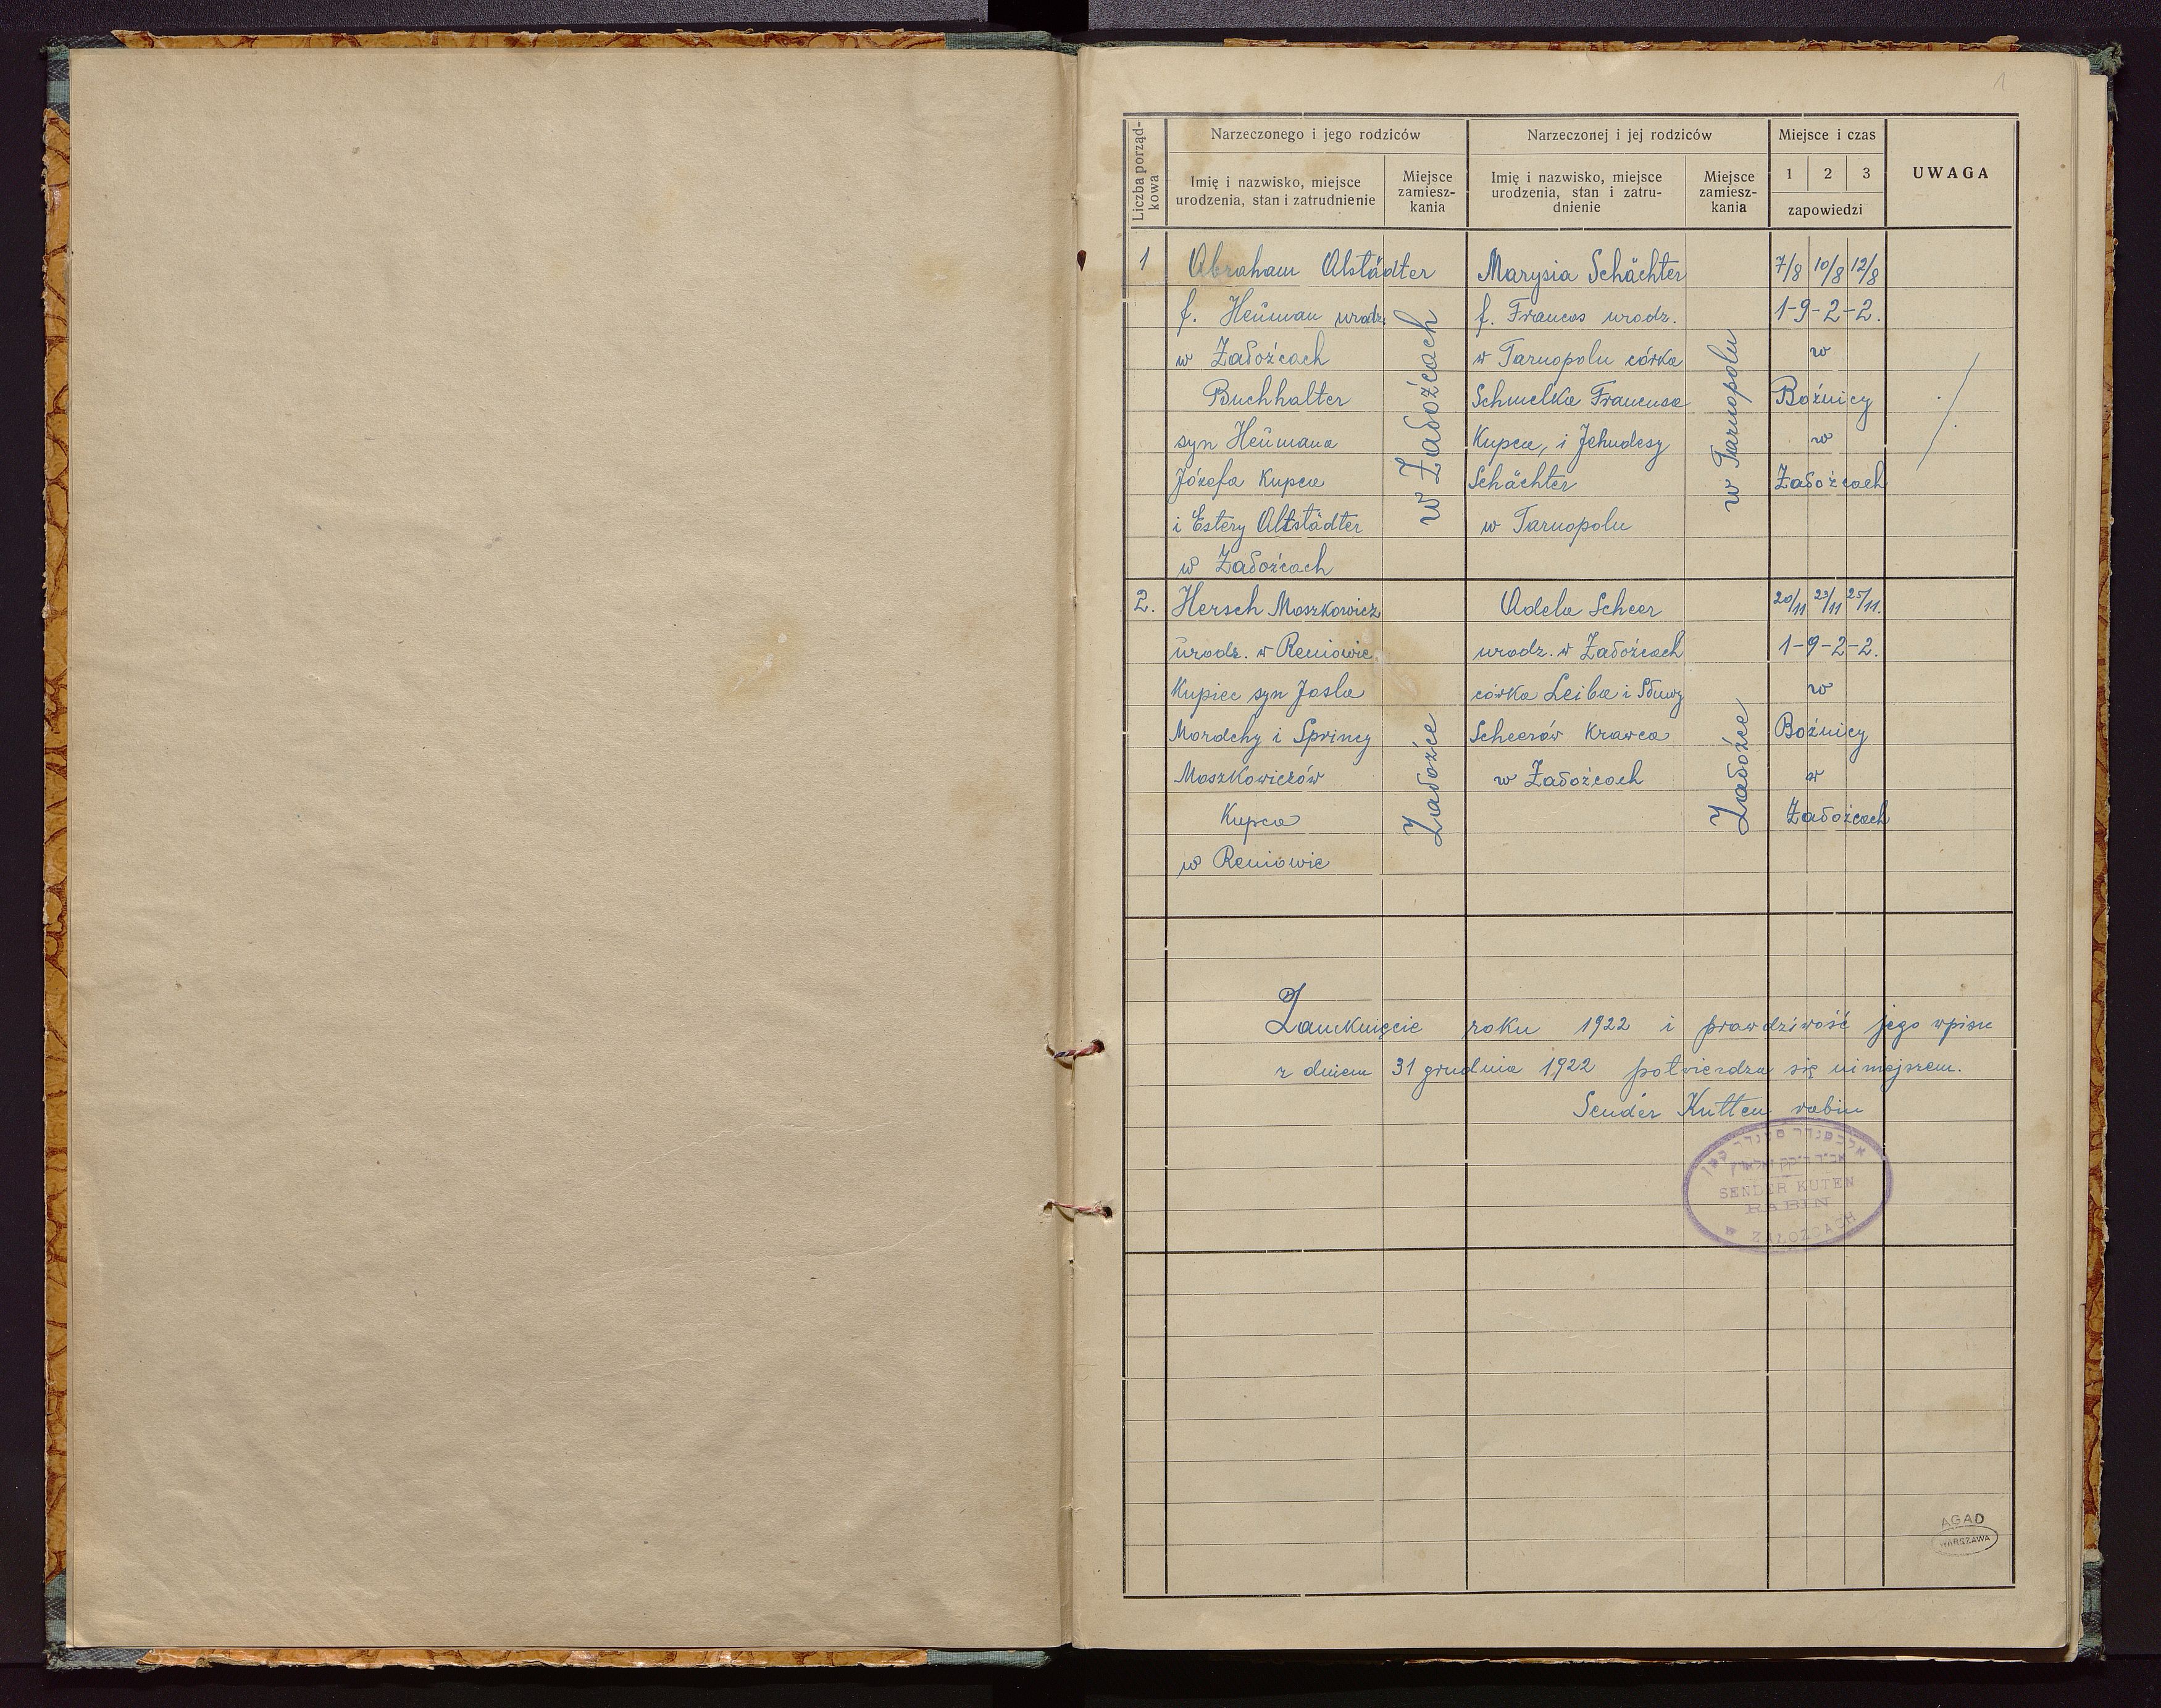 1
Liczba porząd-
kowa
Narzeczonego i jego rodziców
Narzeczonej i jej rodziców
Miejsce i czas
UWAGA
Imię i nazwisko, miejsce
urodzenia, stan i zatrudnienie
Miejsce
zamiesz-
kania
Imię i nazwisko, miejsce
urodzenia, stan i zatru-
dnienie
Miejsce
zamiesz-
kania
1 2 3
zapowiedzi
1
Abraham Alstädter
f. Heüman urodz.
w Załoźcach
Buchhalter
syn Heümana
Józefa Kupca
i Estery Altstädter
w Załoźcach
w Załoźcach
Marysia Schächter
f. Francos urodz.
w Tarnopolu córka
Schmelka Francusa
Kupca, i Jehudesy
Schächter
w Tarnopolu
w Tarnopolu
7/8 10/8 12/8
1-9-2-2.
w
Bożnicy
w
Załoźcach
2.
Hersch Moszkowicz
ürodz. w Reniowie
Kupiec syn Josla
Mordchy i Sprincy
Moszkowiczów
Kupca
w Reniowie
Załoźce
Adela Scheer
urodz. w Załoźcach
córka Leiba i Słuwy
Scheerów Krawca
w Załoźcach
Załoźce
20/11 23/11 25/11.
1-9-2-2.
w
Bożnicy
w
Załoźcach
Zamknięcie roku 1922 i prawdziwość jego wpisu
z dniem 31 grudnia 1922 potwierdza się niniejszem.
Sender Kutten rabin
אלכסנדר סענדר
SENDER KUTEN
RABIN
W ZAŁOZCACH
AGAD
WARSZAWA